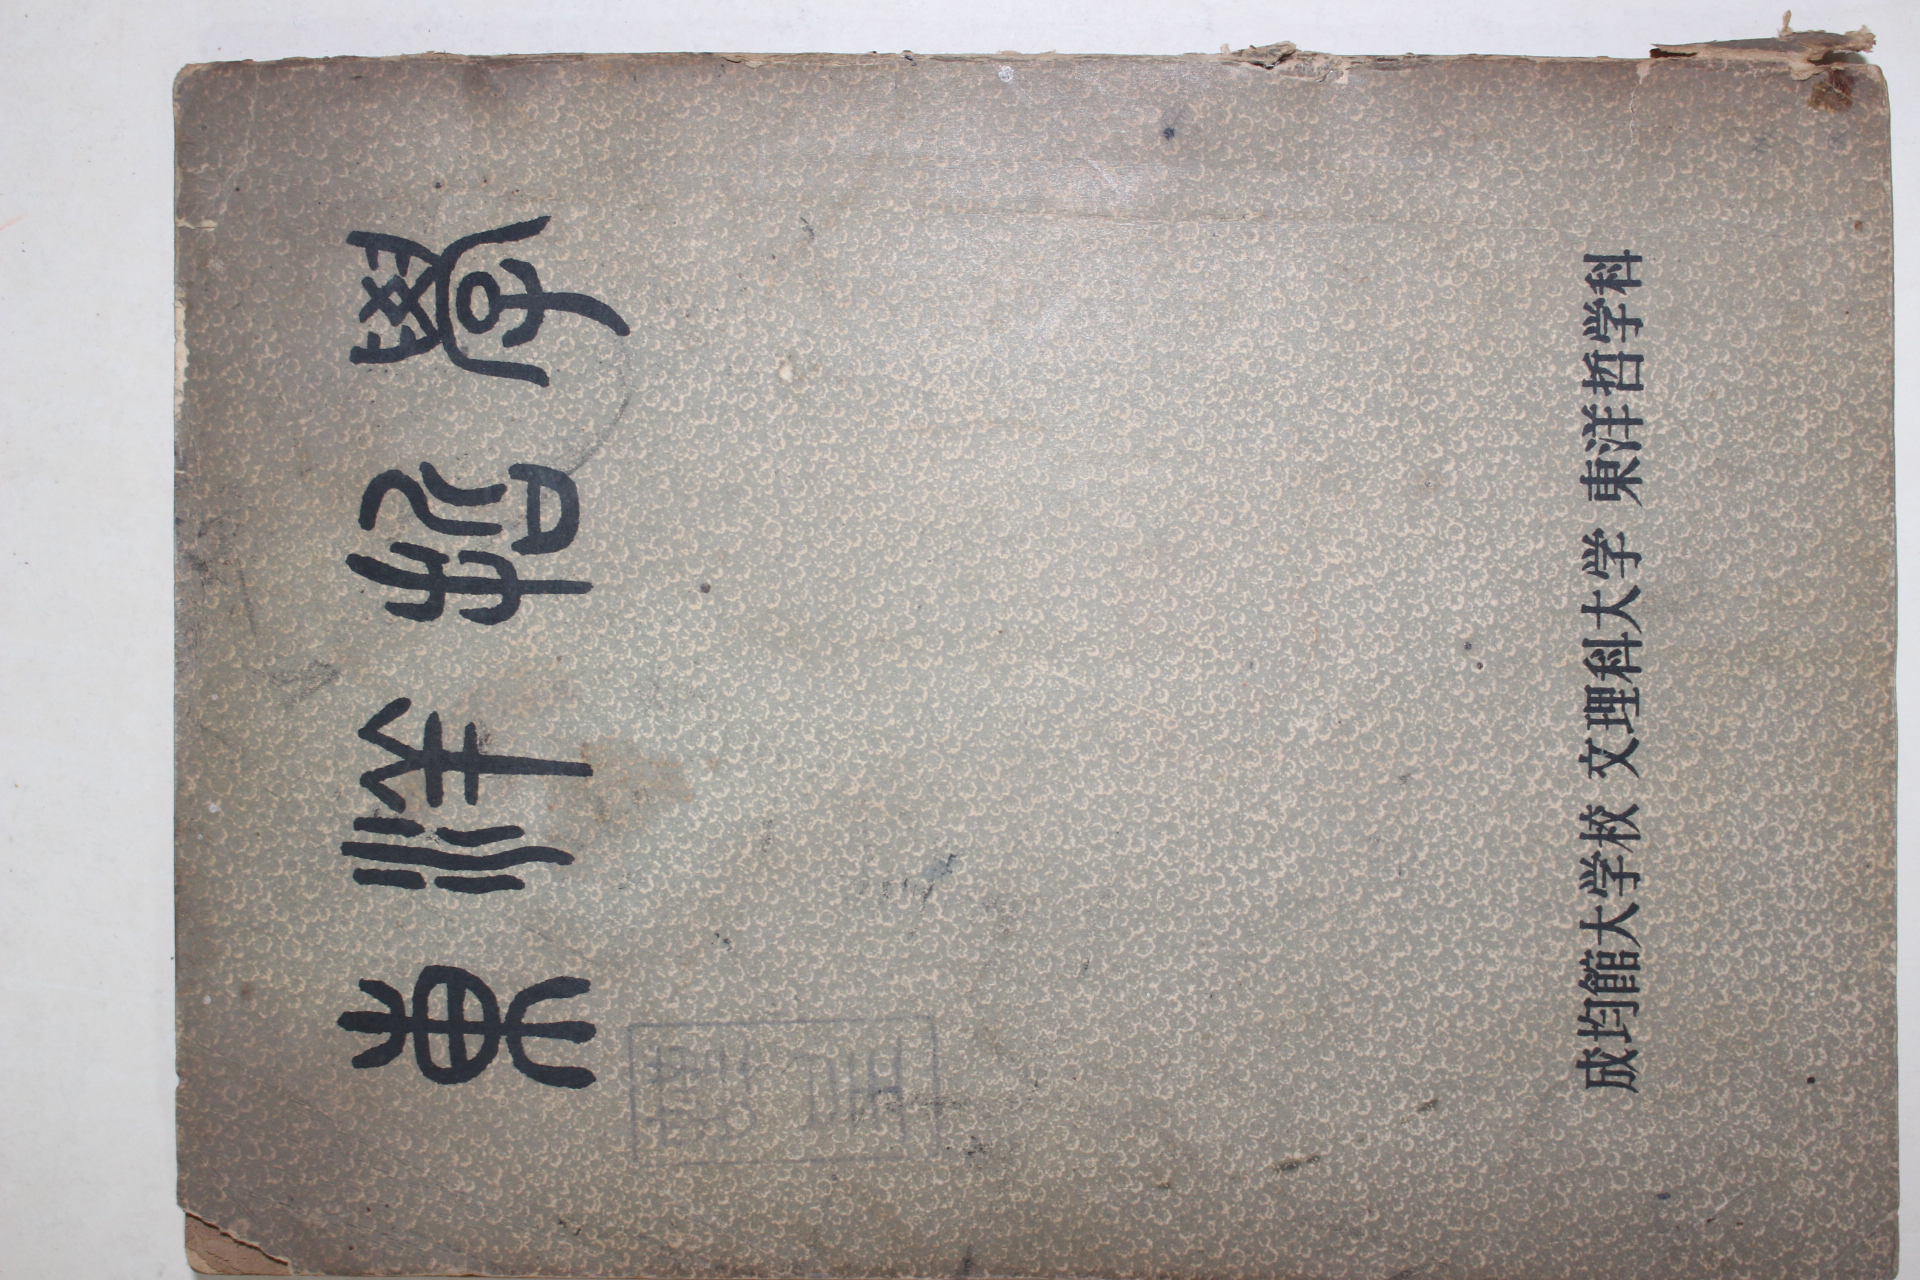 東洋哲學
成均館大学校 文理科大学 東洋哲学科